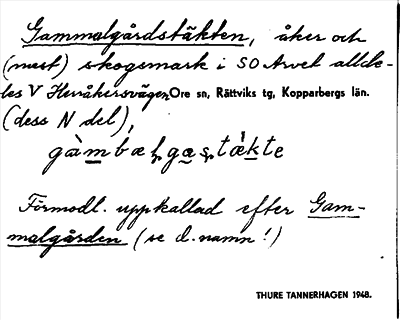 Gammalgårdstäkten, åker och
(mest) skogsmark i SO Arvet allde-
les V Herråkersvägen, Ore sn, Rättviks tg, Kopparbergs län.
(dess N del),
gàmbæļgaṣtǽkte
Förmodl. uppkallad efter Gam-
malgården (se d. namn!)
THURE TANNERHAGEN 1948.